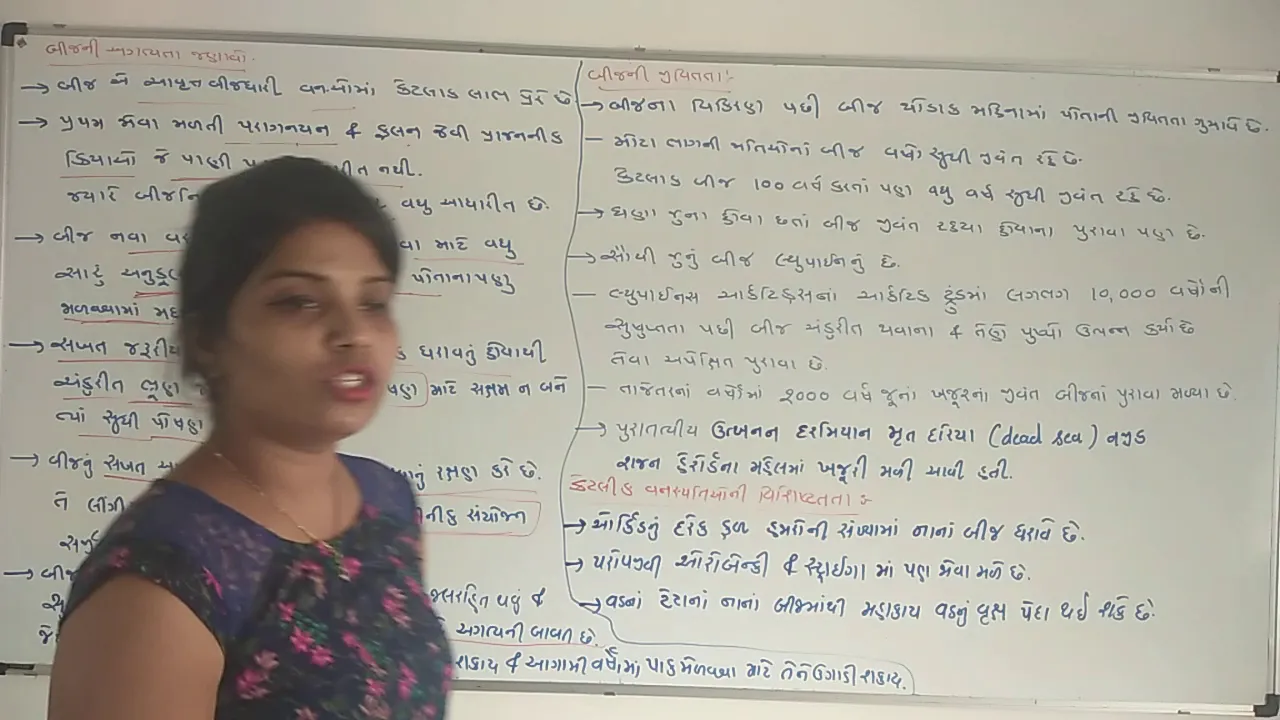 બીજની અગત્યતા જણાવો.
→ બીજ એ આવૃત બીજધારી વન.ઓમાં કેટલાક લાભ પુરે છે
→ પ્રથમ જોવા મળતી પરાગનયન & ફલન જેવી પ્રાજનનીક
ક્રિયાઓ જે પાણી નથી.
જ્યારે વધુ આધારીત છે.
→ બીજ નવા માટે વધુ
સારું પોતાના પણ
મળવવામાં
→ સખત જરૂરીયા ધરાવતું હોવાથી
અંકુરીત ભ્રૂણ માટે સક્ષમ ન બને
ત્યાં સુધી પોષણ
→ બીજનું સખત રક્ષણ કરે છે.
તે લીંગી સંયોજન
→ બીજ
જલરહિત થવું &
અગત્યની બાબત છે.
& આગામી વર્ષોમાં પાક મેળવવા માટે તેને ઉગાડી શકાય.
બીજની જીવિતતા :-
→ બીજના વિકિરણ પછી બીજ થોડાક મહિનામાં પોતાની જીવિતતા ગુમાવે છે.
- મોટા ભાગની જાતિઓનાં બીજ વર્ષો સુધી જીવંત રહે છે.
કેટલાક બીજ 100 વર્ષ કરતાં પણ વધુ વર્ષ સુધી જીવંત રહે છે.
→ ઘણા જુના હોવા છતાં બીજ જીવંત રહ્યા હોવાના પુરાવા પણ છે.
→ સૌથી જુનું બીજ લ્યુપાઈનનું છે.
- લ્યુપાઈનસ આર્કટિક્સનાં આર્કટિક ટુંડ્રમાં લગભગ 10,000 વર્ષોની
સુષુપ્તતા પછી બીજ અંકુરીત થવાના & તેણે પુષ્પો ઉત્પન્ન કર્યા છે
તેવા અપેક્ષિત પુરાવા છે.
- તાજેતરનાં વર્ષોમાં 2000 વર્ષ જૂનાં ખજૂરના જીવંત બીજનાં પુરાવા મળ્યા છે.
→ પુરાતત્વીય ઉત્ખનન દરમિયાન મૃત દરિયા (dead sea) નજીક
રાજન હેરોર્ડના મહેલમાં ખજૂરી મળી આવી હતી.
કેટલીક વનસ્પતિઓની વિશિષ્ટતા :-
→ ઓર્કિડનું દરેક ફળ હજારોની સંખ્યામાં નાનાં બીજ ધરાવે છે.
→ પરોપજીવી ઓરોબેન્કી & સ્ટ્રાઈગા માં પણ જોવા મળે છે.
→ વડનાં ટેટાનાં નાનાં બીજમાંથી મહાકાય વડનું વૃક્ષ પેદા થઈ શકે છે.